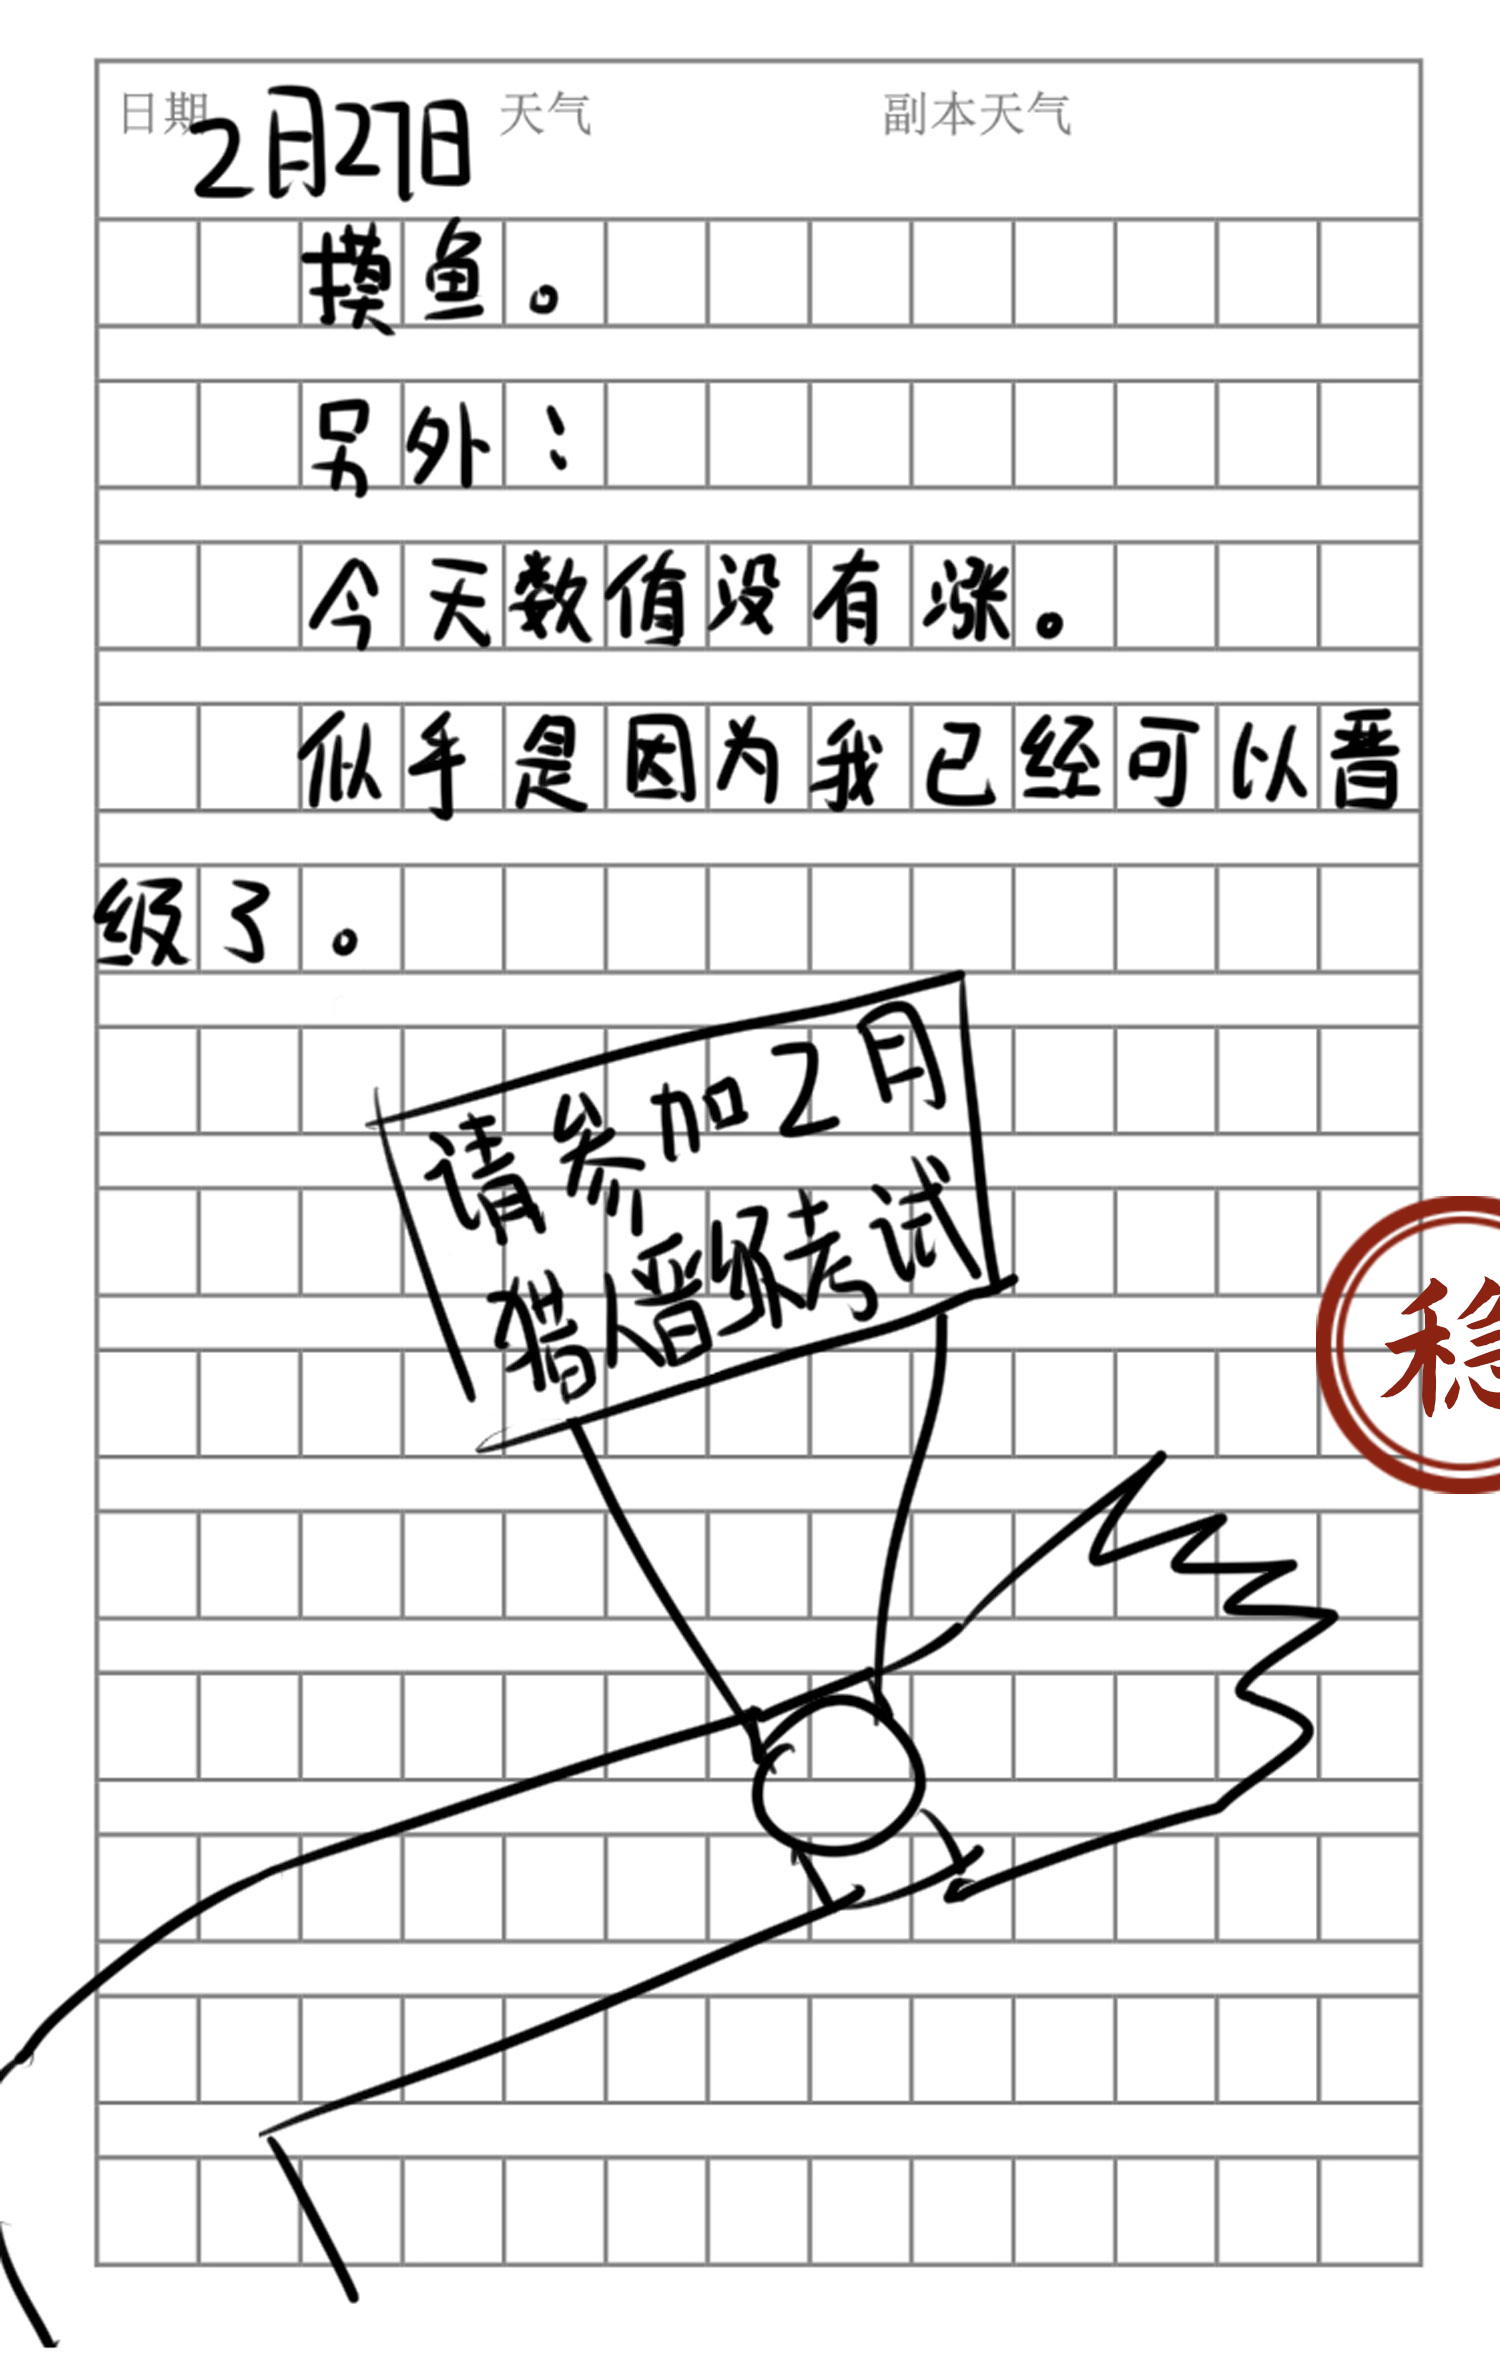 日期 天气 副本天气
2月27日
摸鱼。
另外：
今天数值没有涨。
似乎是因为我已经可以晋
级了。
请参加2月
猎人晋级考试
稳